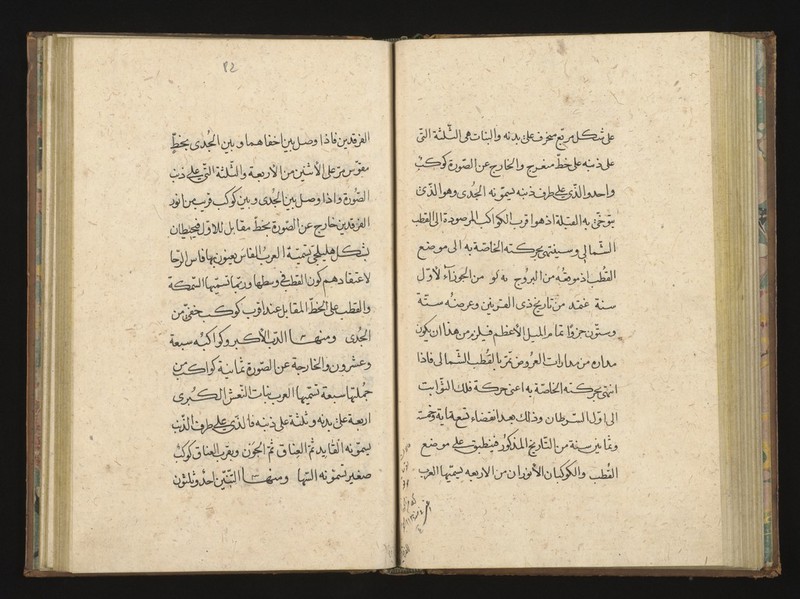 على شكل مربع منحرف على بدنه والبنات هى الثلثة التى
على ذنبه على خط منعرج والخارج عن الصورة كوكب
واحد والذى على طرف ذنبه يسمونه الجدى وهو الذى
يتوخى به القبلة اذ هو اقرب الكواكب المرصودة الى القطب
الشمالى وسينتهى بحركته الخاصة به الى موضع
القطب اذ موقعه من البروج من الجوزاء لاول
سنة غفد من تاريخ ذى القرنين وعرضه ستة
وستون جزوا تمام الميل الاعظم فيلزم من هذا ان يكون
مداره من مدارات العروض تمر بالقطب الشمالى فاذا
انتهى بحركته الخاصة به اعنى حركة فلك الثوابت
الى اول السرطان وذلك بعد انقضاء تسعماية وخمس
وثمانين سنة من التاريخ المذكور فينطبق على موضع
القطب والكوكبان الأنوران من الاربعة يسميها العرب
٣٢
الفرقدين فاذا وصل بين اخفاهما وبين الجُدى بخط
مقوس مر على الأثنين من الأربعة والثلثة التى على ذنب
الصورة واذا وصل بين الجدى وبين كوكب قريب من انور
الفرقدين خارج عن الصورة بخط مقابل للاول فيحيطان
بشكل هليلجى تسميه العرب الفاس يعنون بها فاس الرحا
لاعتقادهم كون القطب فى وسطها وربما تسميها السمكة
والقطب على الخط المقابل عند اقرب كوكب خفى من
الجدى ومنها الدب الأكبر وكواكبه سبعة
وعشرون والخارجة عن الصورة ثمانية كواكب من
جملتها سبعة تسميها العرب بنات النعش الكبرى
اربعة على بدنه وثلثة على ذنبه فالذى على طرف الذنب
يسمونه القايد ثم العناق ثم الجون وبقرب العناق كوكب
صغير تسمونه السها ومنها التنين احد وثلثون